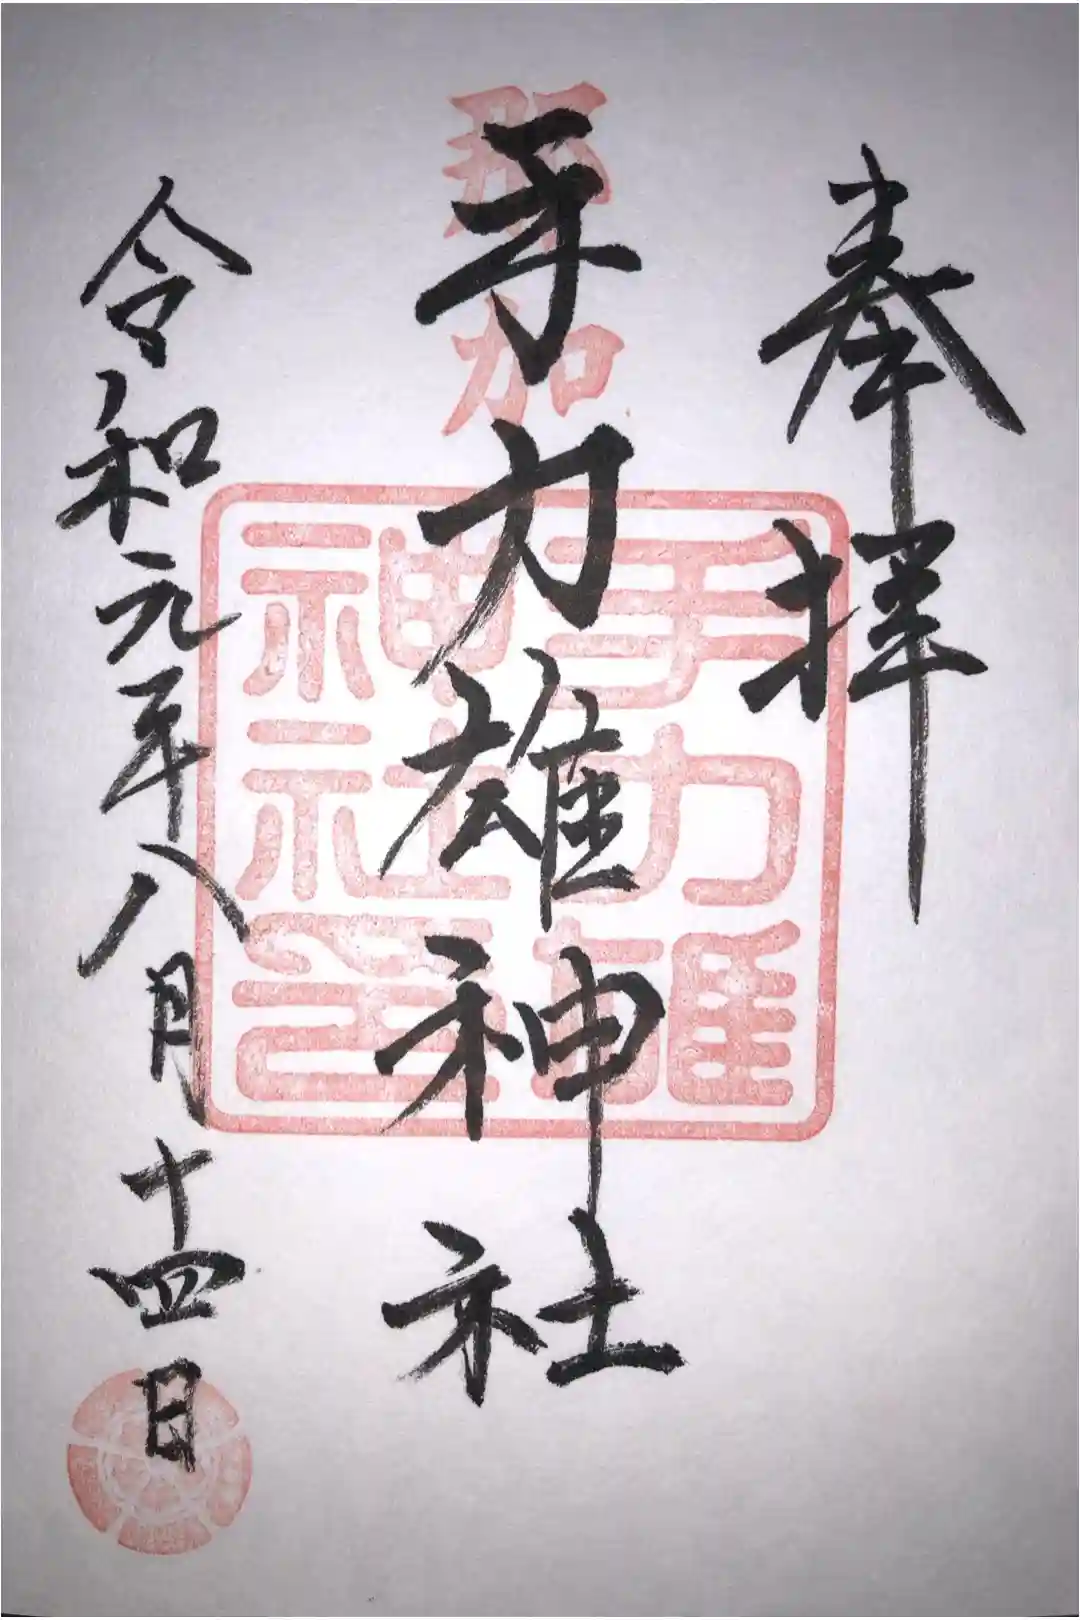 奉拝
那加
手力雄神社
手力雄
神社印
令和元年八月十四日